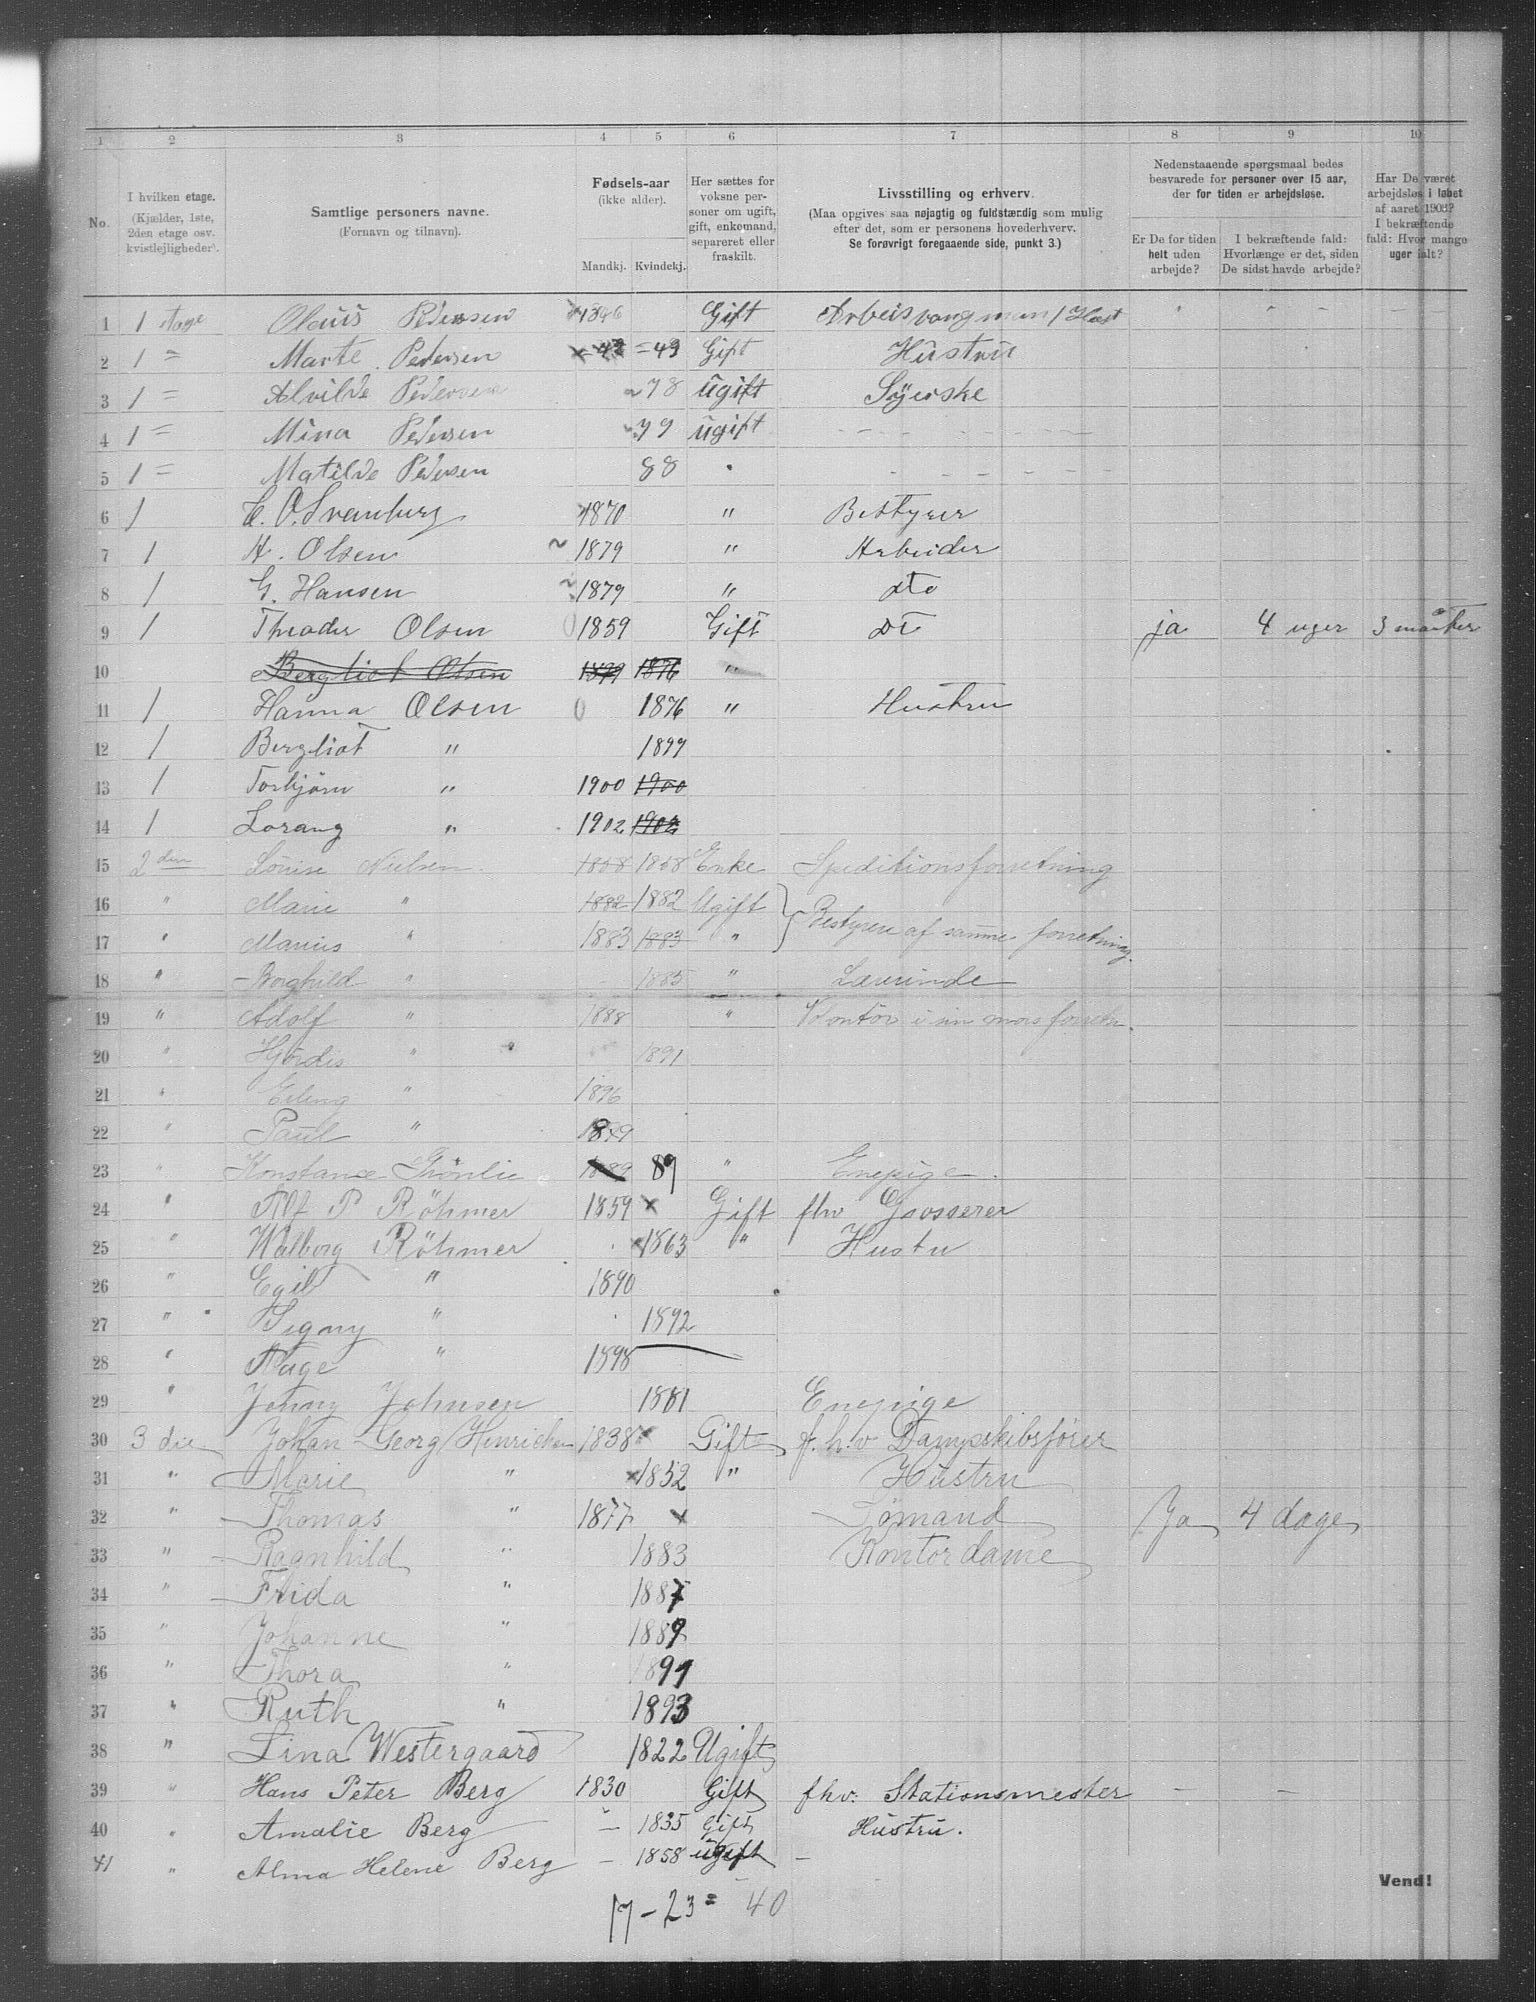 1 2 3 4 5 6 7 8 9 10
No.
I hvilken etage.
(Kjælder, 1ste,
2den etage osv.
kvistlejligheder).
Samtlige personers navne.
(Fornavn og tilnavn).
Fødsels-aar
(ikke alder).
Mandkj. Kvindekj.
Her sættes for
voksne per-
soner om ugift,
gift, enkemand,
separeret eller
fraskilt.
Livsstilling og erhverv.
(Maa opgives saa nøjagtig og fuldstændig som mulig
efter det, som er personens hovederhverv.
Se forøvrigt foregaaende side, punkt 3.)
Nedenstaaende spørgsmaal bedes
besvarede for personer over 15 aar,
der for tiden er arbejdsløse.
Er De for tiden
helt uden
arbejde?
I bekræftende fald:
Hvorlænge er det, siden
De sidst havde arbejde?
Har De været
arbejdsløs i løbet
af aaret 1903?
I bekræftende
fald: Hvor mange
uger ialt?
1 1 etage Olaus Pedersen 1846 Gift
2 1 = Marte Pedersen = 49 Gift Hüstrü
3 1 = Alvilde Pedersen 78 ügift Syerske
4 1 = Mina Pedersen 79 ügift
5 1 = Matilde Pedersen 88
6 1 C. O. Svenburg 1870 " Bestyrer
7 1 H. Olsen 1879 " Arbeider
8 1 G. Hansen 1879 " dto
9 1 Theodor Olsen 1859 Gift Dt ja 4 uger 3 maaneder
10 Bergliot Olsen 1899 1876 "
11 1 Hanna Olsen 1876 " Hustru
12 1 Bergliot " 1899
13 1 Torbjørn " 1900 1900
14 1 Lorang " 1902 1902
15 2den Lovise Nielsen 1858 1858 Enke Speditionsforretning
16 " Marie " 1882 1882 Ugift } Bestyrere af samme forretning.
17 " Marius " 1883 1883 "
18 " Borghild " 1885 " Lærerinde
19 " Adolf " 1888 " Kontor i sin mors forretn.
20 " Hjørdis " 1891
21 " Erling " 1896
22 " Paul "
23 " Konstance Grönlie 1889 89 " Enepige.
24 " Alf P Röhmer 1859 Gift fhv Grosserer
25 " Walborg Röhmer 1863 " Hustru
26 " Egil " 1890
27 " Signy " 1892
28 " Aage " 1898
29 " Jenny Johnsen 1881 Enepige
30 3die Johan Georg Henrichsen 1838 Gift f.h.v Dampskibsfører
31 " Marie " 1852 " Hüstru
32 " Thomas " 1877 Sømand Ja 4 dage
33 " Ragnhild " 1883 Kontordame
34 " Frida " 1887
35 " Johanne " 1889
36 " Thora " 1891
37 " Ruth " 1893
38 " Lina Westergaard 1822 Ugift
39 " Hans Peter Berg 1830 Gift fhv. Stationsmester — —
40 " Amalie Berg — 1835 Gift Hüstrü.
41 " Alma Helene Berg — 1858 ügift —
17 - 23 = 40
Vend!